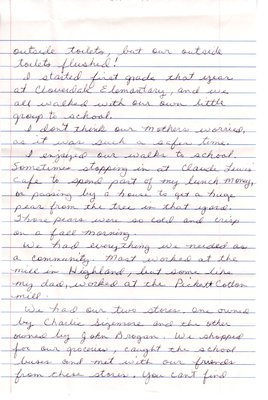 outside toilets, but our outside
toilets flushed!
I started first grade that year
at Cloverdale Elementary, and we
all walked with our own little
group to school.
I don't think our Mothers worried,
as it was such a safer time.
I enjoyed our walks to school.
Sometimes stopping in at Claude Lewis
Cafe to spend part of my lunch money,
or passing by a house to get a huge
pear from the tree in that yard.
Those pears were so cold and crisp
on a fall morning.
We had everything we needed as
a community. Most worked at the
mill in Highland, but some like
my dad, worked at the Pickett Cotton
mill.
We had our two stores, one owned
by Charlie Sizemore and the other
owned by John Brogan. We shopped
for our groceries, caught the school
buses and met with our friends
from these stores. You can't find